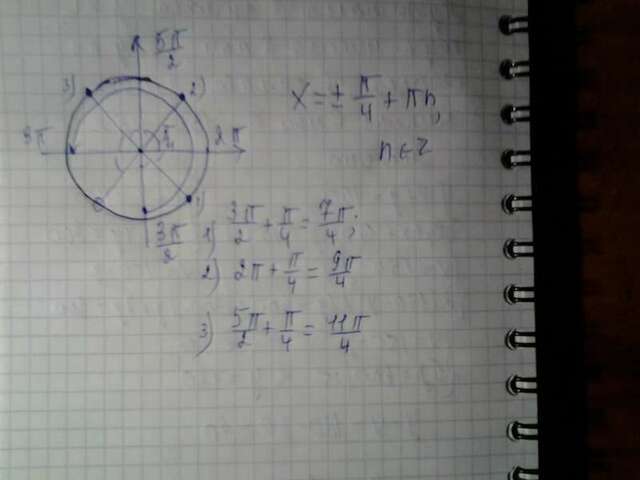 5π/2
3) 2)
3π π/4 2π
1)
3π/2
x = ± π/4 + πn,
n ∈ Z
1) 3π/2 + π/4 = 7π/4;
2) 2π + π/4 = 9π/4
3) 5π/2 + π/4 = 11π/4